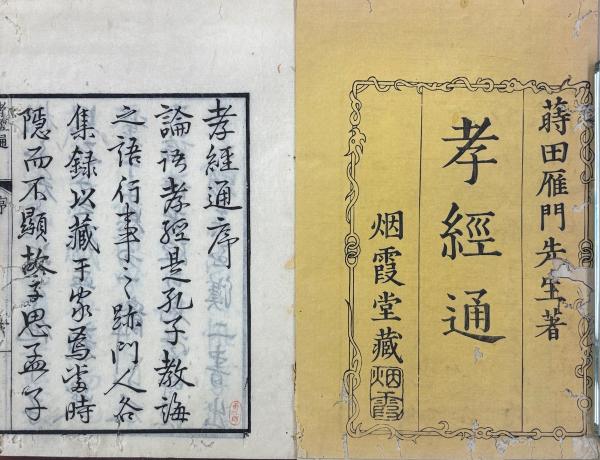 蒔田雁門先生著
孝經通
烟霞堂藏
烟霞
孝經通序
論語孝經是孔子教誨
之語行事之跡門人各
集録以藏于家焉當時
隱而不顯故子思孟子
孝經通
序